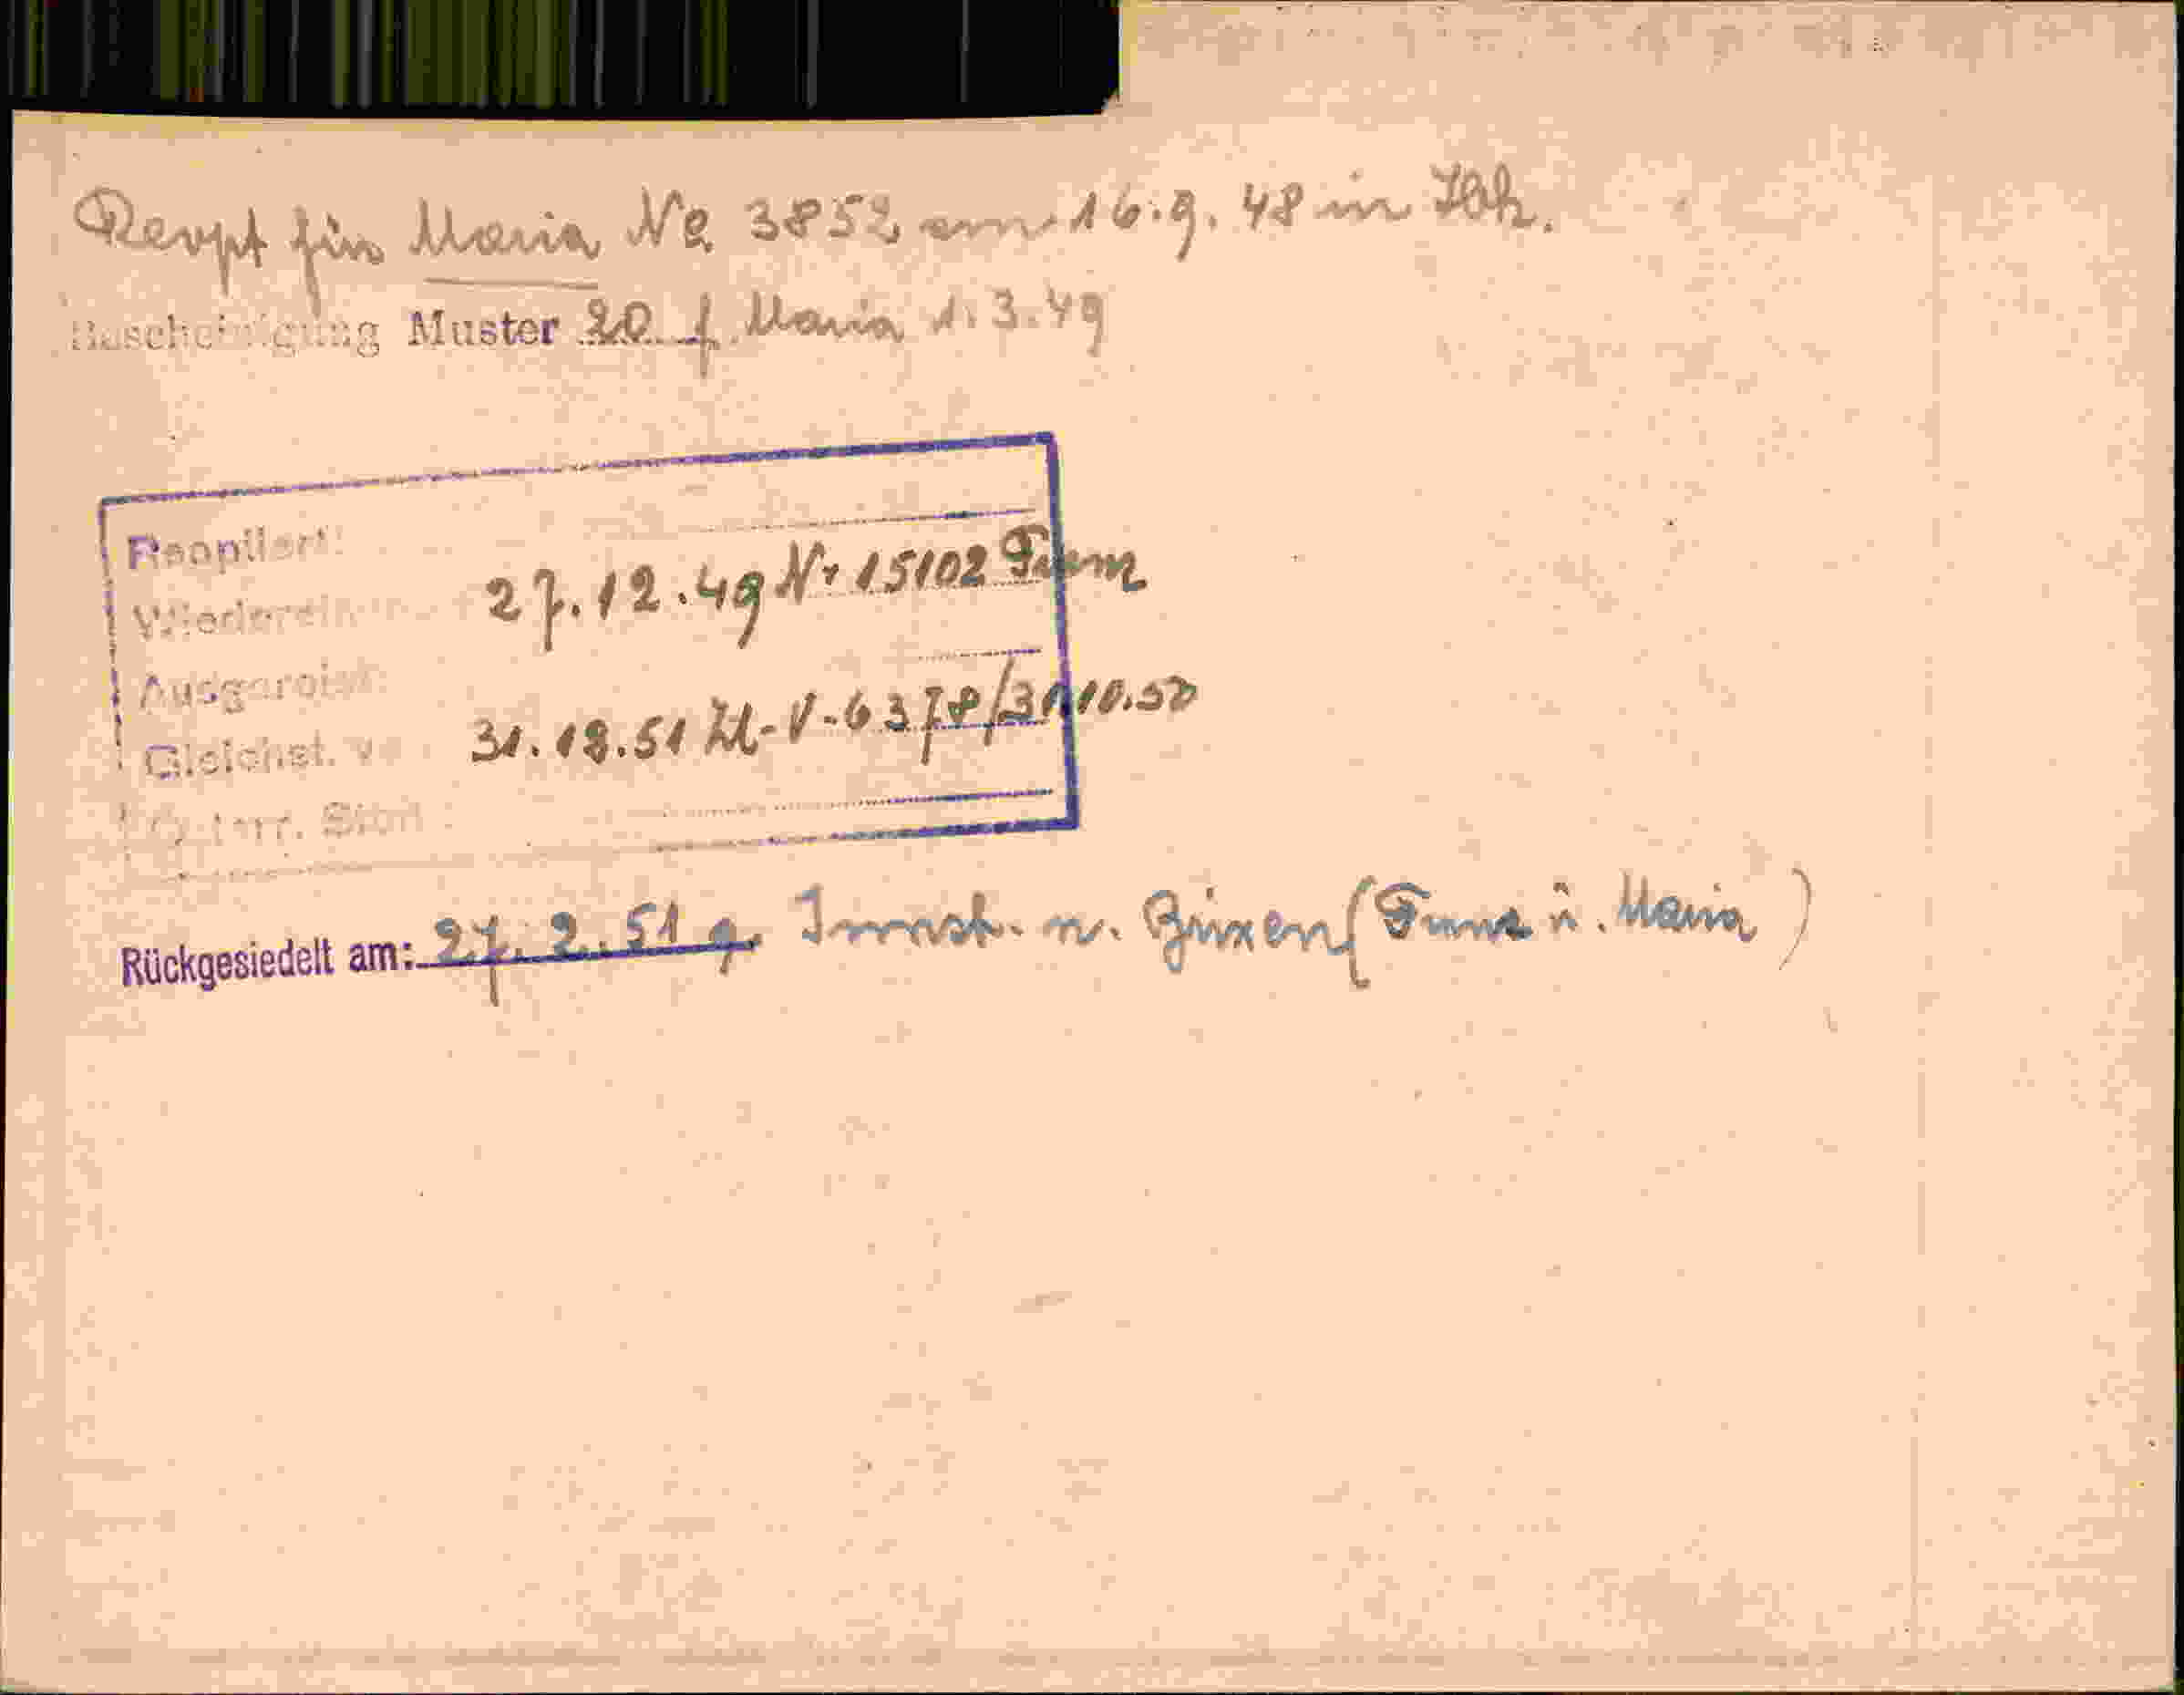 Reopt für Maria No 3852 am 16.9.48 in Ibk.
Bescheinigung Muster 20 f. Maria 1.3.49
Reoptiert:
27.12.49 Nr 15102 Franz
Ausgereist:
Gleichst. 31.12.51 Zl-V-6378/31.10.50
Rückgesiedelt am: 27.2.51 v. Brixen (Franz u. Maria)